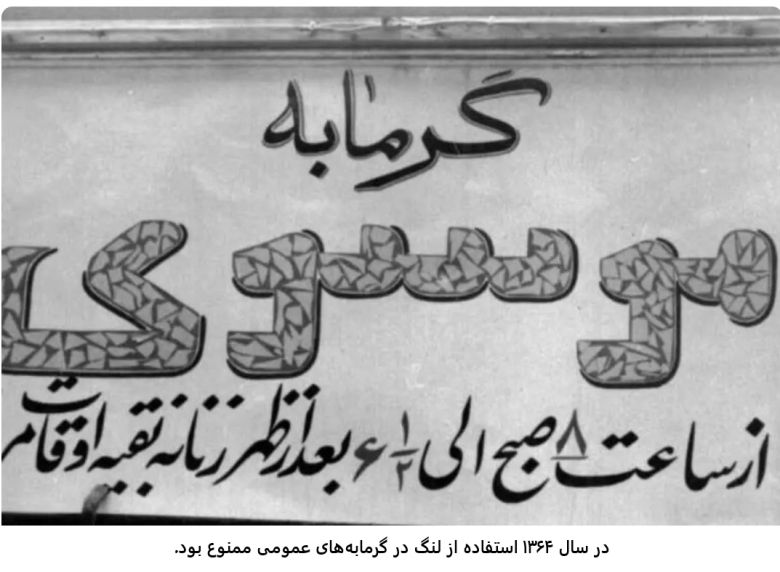 گرمابه
موسوی
از ساعت ۸ صبح الی ۶ ۱/۲ بعد از ظهر زنانه بقیه اوقات
در سال ۱۳۶۴ استفاده از لنگ در گرمابه‌های عمومی ممنوع بود.